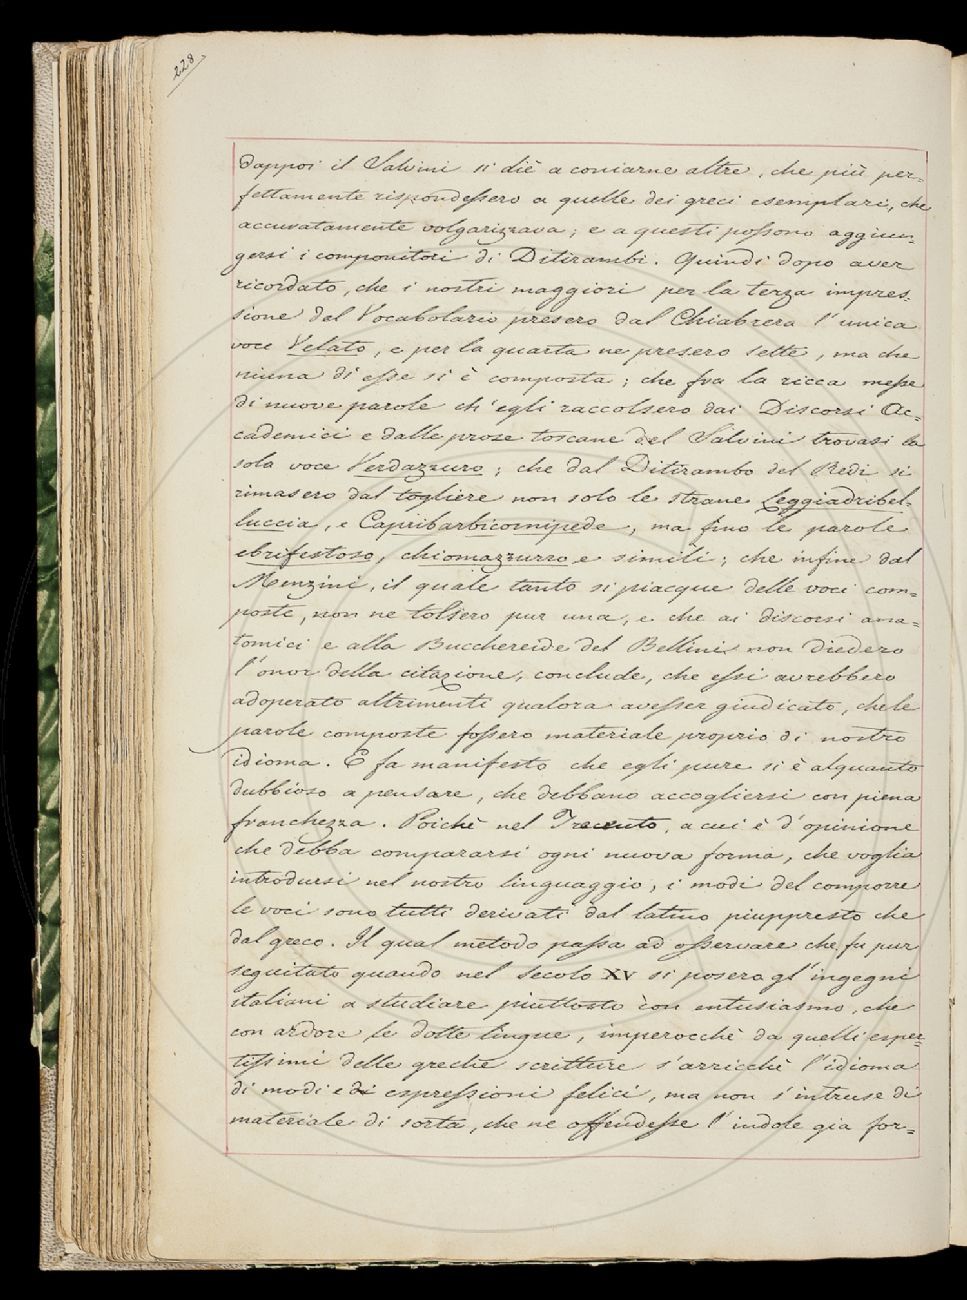 228
dappoi il Salvini si diè a coniarne altre, che più per=
fettamente rispondessero a quelle dei greci esemplari, che
accuratamente volgarizzava; e a questi possono aggiun=
gersi i componitori di Ditirambi. Quindi dopo aver
ricordato, che i nostri maggiori per la terza impres=
sione del Vocabolario presero dal Chiabrera l'unica
voce Velato, e per la quarta ne presero sette, ma che
niuna di esse si è composta; che fra la ricca messe
di nuove parole ch'egli raccolsero dai Discorsi Ac=
cademici e dalle prose toscane del Salvini trovasi la
sola voce Verdazzuro; che dal Ditirambo del Redi si
rimasero dal togliere non solo le strane Leggiadribel=
luccia, e Capribarbicornipede, ma fino le parole
ebrifestoso, chiomazzurro e simili; che infine dal
Menzini, il quale tanto si piacque delle voci com=
poste, non ne tolsero pur una, e che ai discorsi ana=
tomici e alla Bucchereide del Bellini non diedero
l'onor della citazione, conclude, che essi avrebbero
adoperato altrimenti qualora avesser giudicato, che le
parole composte fossero materiale proprio di nostro
idioma. E fa manifesto che egli pure si è alquanto
dubbioso a pensare, che debbano accogliersi con piena
franchezza. Poichè nel Trecento, a cui è d'opinione
che debba compararsi ogni nuova forma, che voglia
introdursi nel nostro linguaggio, i modi del comporre
le voci sono tutti derivati dal latino piuppresto che
dal greco. Il qual metodo passa ad osservare che fu pur
seguitato quando nel secolo XV si posero gl'ingegni
italiani a studiare piuttosto con entusiasmo, che
con ardore le dotte lingue, imperocchè da quelli esper=
tissimi delle greche scritture s'arricchì l'idioma
di modi e di espressioni felici, ma non s'intruse di
materiale di sorta, che ne offendesse l'indole gia for=